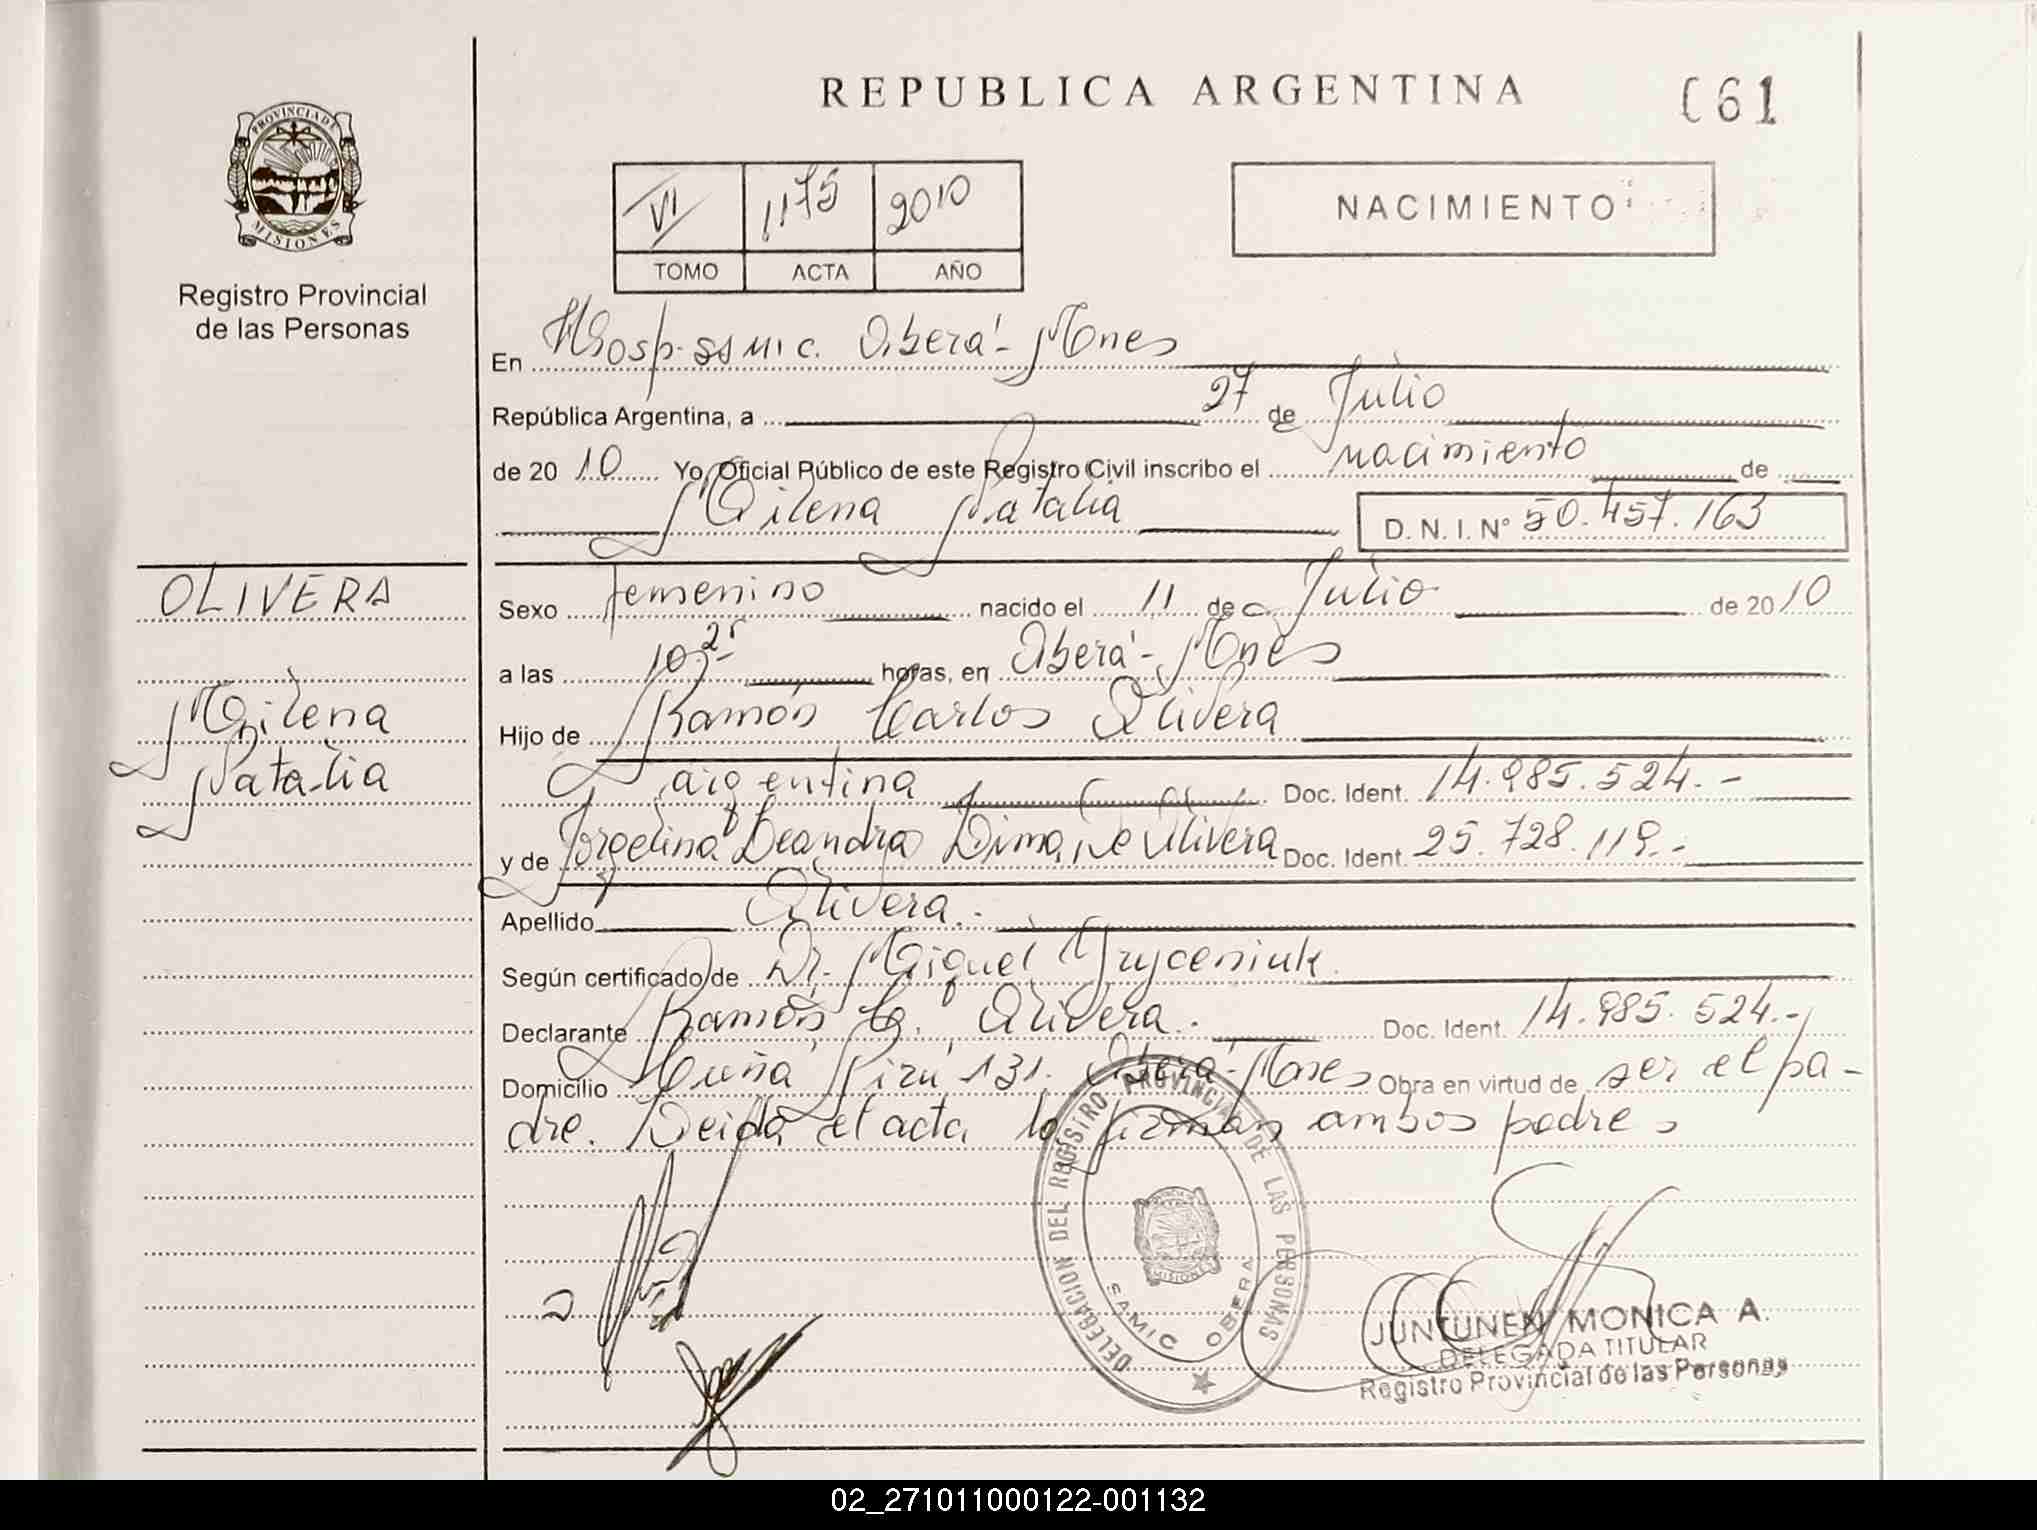 REPUBLICA ARGENTINA
061
PROVINCIA DE
MISIONES
Registro Provincial
de las Personas
VI 1175 2010
TOMO ACTA AÑO
NACIMIENTO
En Hosp. SAMIC. Oberá - Mnes
República Argentina, a 27 de Julio
de 2010 Yo, Oficial Público de este Registro Civil inscribo el nacimiento de
Milena Natalia
D. N. I. Nº 50.457.163
OLIVERA
Milena
Natalia
Sexo femenino nacido el 11 de Julio de 2010
a las 10,25 horas, en Oberá - Mnes
Hijo de Ramón Carlos Olivera
argentina Doc. Ident. 14.985.524.-
y de Jorgelina Leandra Lima de Olivera Doc. Ident. 25.728.119.-
Apellido Olivera.-
Según certificado de Dr. Miguel
Declarante Ramón C. Olivera. Doc. Ident. 14.985.524.-
Domicilio Cuña Pirú 131. Oberá - Mnes Obra en virtud de ser el pa-
dre. Leida el acta la firman ambos padres
DELEGACION DEL REGISTRO PROVINCIAL DE LAS PERSONAS
SAMIC OBERA
JUNTUNEN MONICA A.
DELEGADA TITULAR
Registro Provincial de las Personas
02_271011000122-001132